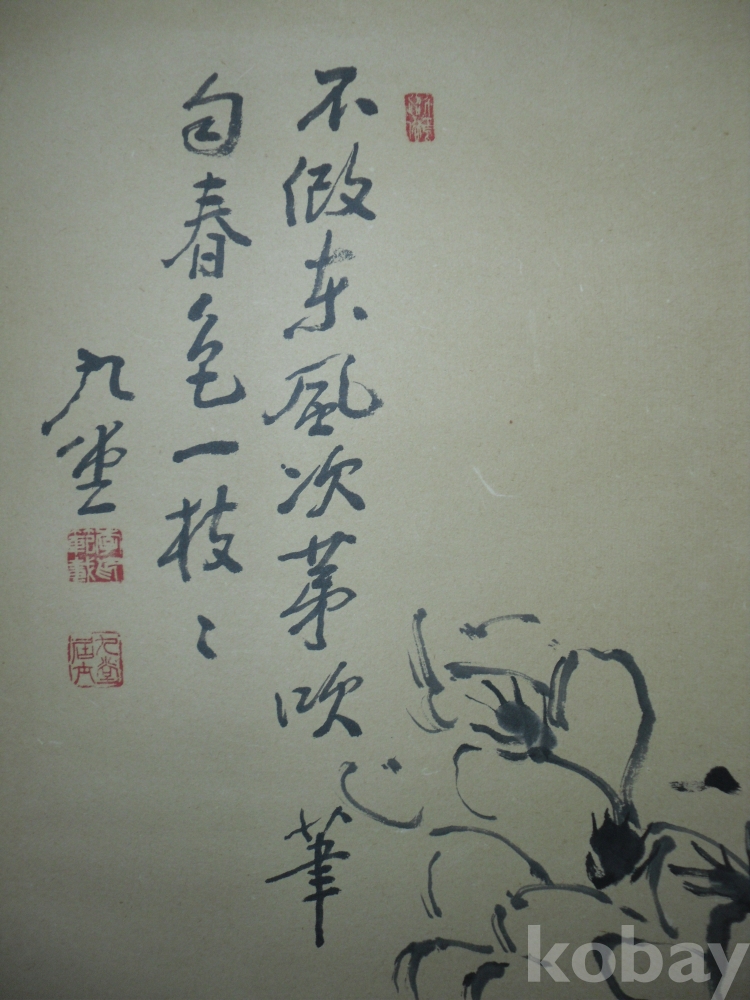 不假東風次苐吹筆
匀春色一枝〻
九坣
kobay